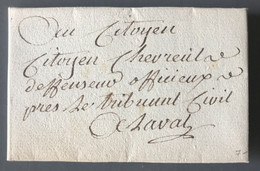 Au Citoyen
Citoyen Chevreul
deffenseur officieux
pres le tribunal Civil
A Laval